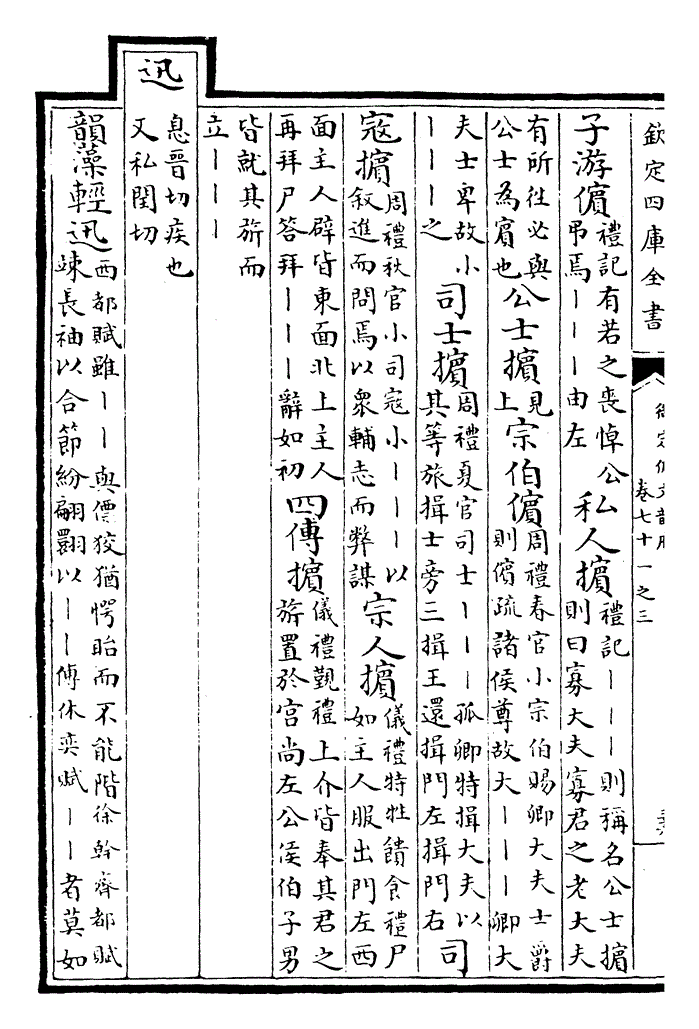 欽定四庫全書
御定佩文韻府
卷七十一之三
子游儐禮記有若之喪悼公弔焉丨丨丨由左私人擯禮記丨丨丨則稱名公士擯則曰寡大夫寡君之老大夫
有所往必與公士為賓也公士擯見上宗伯儐周禮春官小宗伯賜卿大夫士爵則儐疏諸侯尊故大丨丨丨卿大
夫士卑故小丨丨丨之司士擯周禮夏官司士丨丨丨孤卿特揖大夫以其等旅揖士旁三揖王還揖門左揖門右司
寇擯周禮秋官小司寇小丨丨丨以叙進而問焉以衆輔志而弊謀宗人擯儀禮特牲饋食禮尸如主人服出門左西
面主人辟皆東面北上主人再拜尸答拜丨丨丨辭如初四傳擯儀禮覲禮上介皆奉其君之旂置於宫尚左公侯伯子男
皆就其旂而立丨丨丨
迅息晉切疾也又私閏切
韻藻輕迅西都賦雖丨丨與僄狡猶愕眙而不能階徐幹齊都賦竦長袖以合節紛翩翾以丨丨傅休奕賦丨丨者莫如